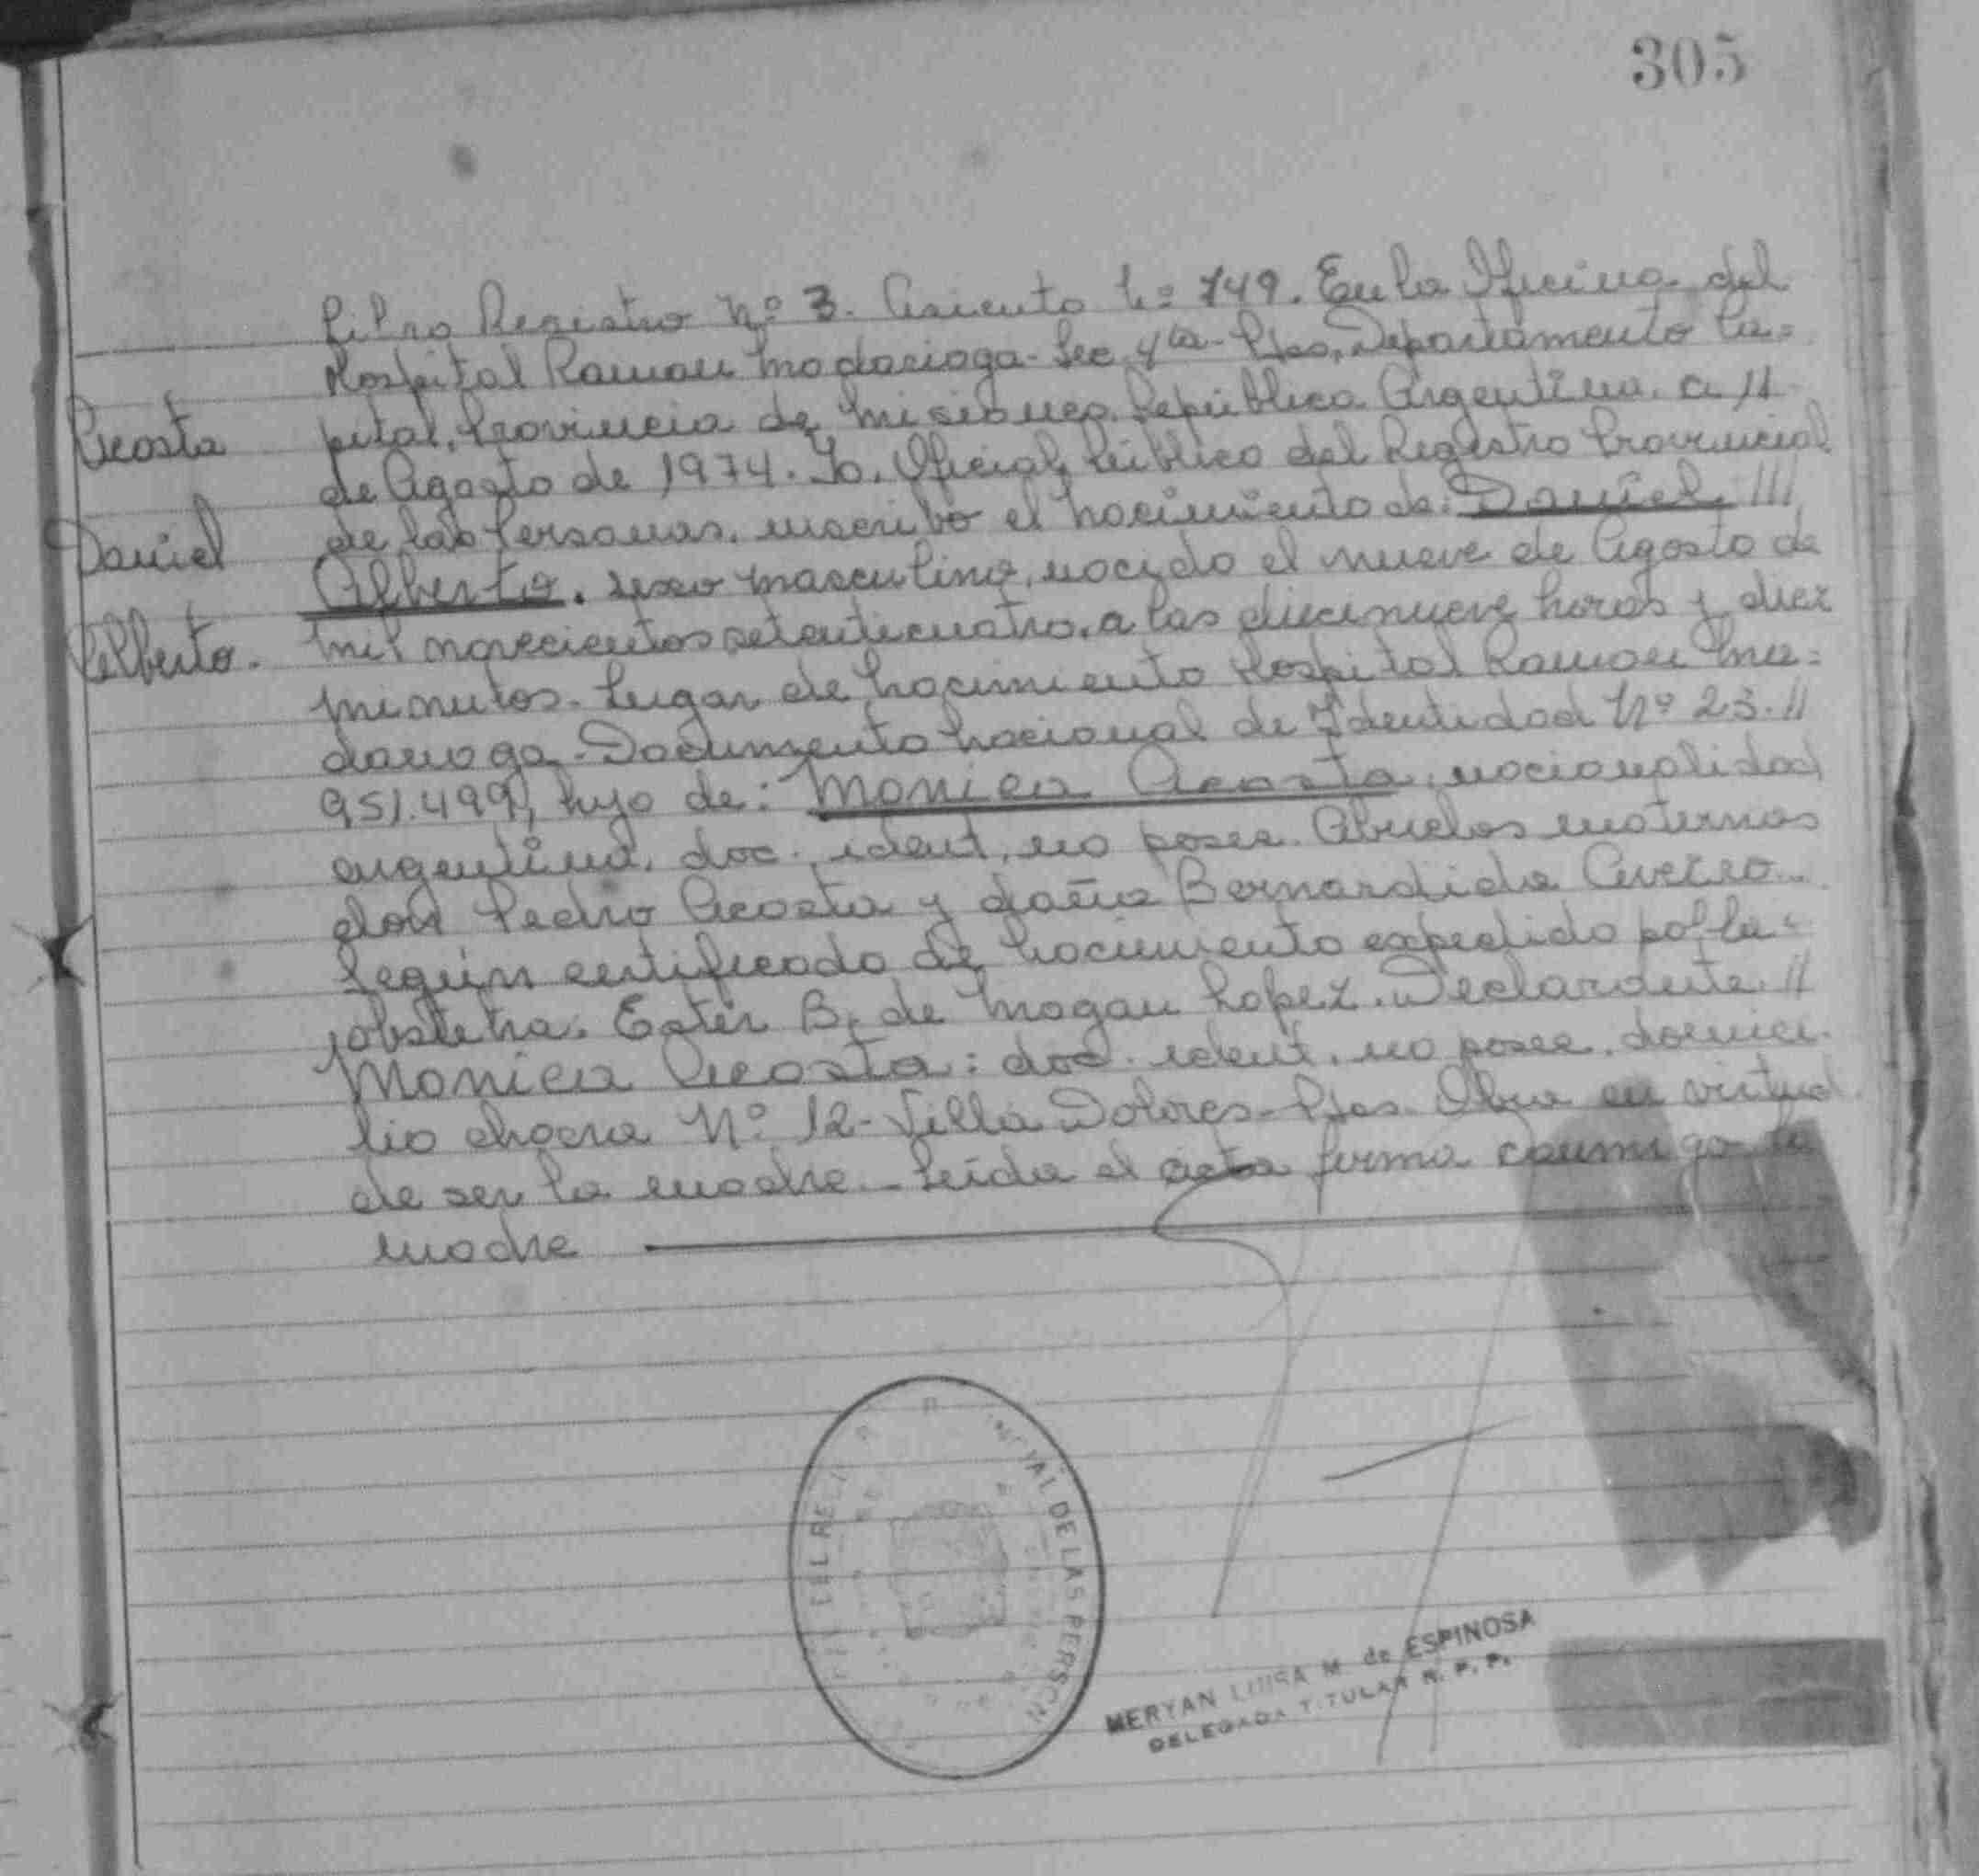 305
Libro Registro Nº 3. Asiento Nº 749. En la Oficina del
Hospital Ramon Madariaga - Sec 4ta - Pdas, Departamento Ca=
Acosta
pital, Provincia de Misiones. República Argentina. a 11
de Agosto de 1974. Yo, Oficial Público del Registro Provincial
Daniel
de las Personas, inscribo el nacimiento de: Daniel ///
Alberto. sexo masculino, nacido el nueve de Agosto de
Alberto.
mil novecientos setenticuatro, a las diecinueve horas y diez
minutos. Lugar de nacimiento Hospital Ramon Ma=
dariaga - Documento Nacional de Identidad Nº 23.//
951.499, hijo de: Monica Acosta, nacionalidad
argentina, doc. ident, no posee. Abuelos maternos
don Pedro Acosta y doña Bernardida
Según certificado de nacimiento expedido por la=
obstetra. Ester B. de Mogan Lopez. Declarante //
Monica Acosta: doc. ident. no posee. domici
lio chacra Nº 12 - Villa Dolores - Pdas. Obra en virtud
de ser la madre. - Leída el acta firma conmigo la
madre
DEL RE
IAL DE LAS PERSON
MERYAN LUISA M. de ESPINOSA
DELEGADA TITULAR R. P. P.